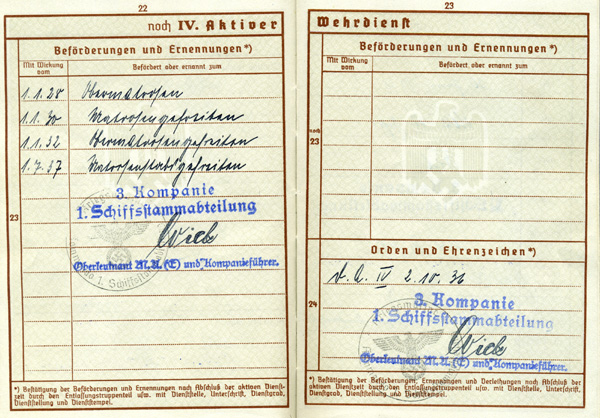 22
noch IV. Aktiver
Beförderungen und Ernennungen*)
Mit Wirkung vom
Befördert oder ernannt zum
1.1.28 Obermatrosen
1.1.30 Matrosengefreiten
1.1.32 Obermatrosengefreiten
1.7.37 Matrosenstabsgefreiten
23
3. Kompanie
1. Schiffsstammabteilung
Oberleutnant M.A.(E) und Kompanieführer.
*) Bestätigung der Beförderungen und Ernennungen nach Abschluß der aktiven Dienst-
zeit durch den Entlassungstruppenteil usw. mit Dienststelle, Unterschrift, Dienstgrad,
Dienststellung und Dienststempel.
23
Wehrdienst
Beförderungen und Ernennungen*)
Mit Wirkung vom
Befördert oder ernannt zum
noch
23
Orden und Ehrenzeichen*)
D.A. IV 2.10.36
24
3. Kompanie
1. Schiffsstammabteilung
Oberleutnant M.A.(E) und Kompanieführer.
*) Bestätigung der Beförderungen, Ernennungen und Verleihungen nach Abschluß der
aktiven Dienstzeit durch den Entlassungstruppenteil usw. mit Dienststelle, Unterschrift,
Dienstgrad, Dienststellung und Dienststempel.